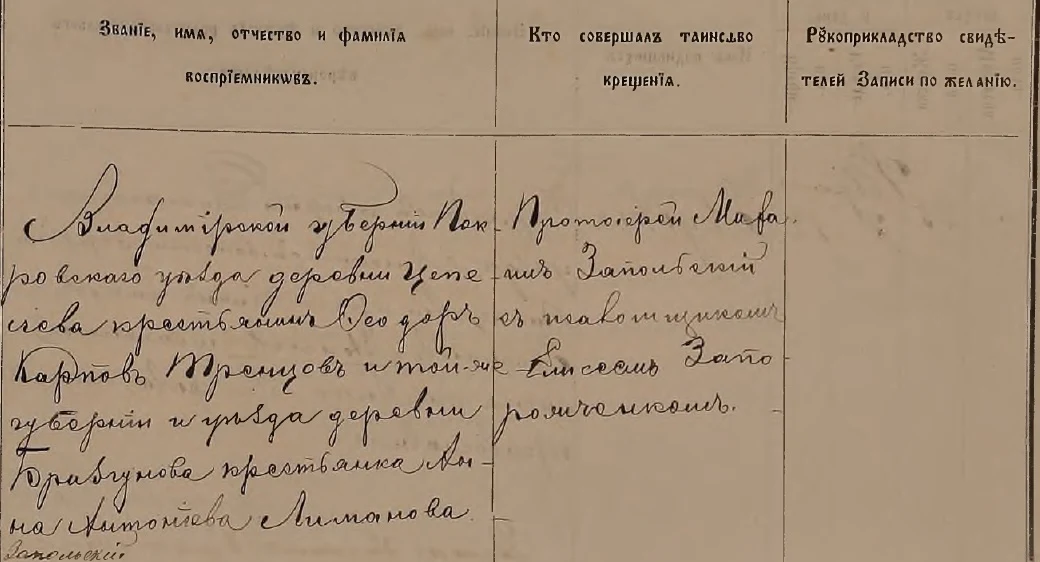 Званіе, имя, отчество и фамилія
воспріемниковъ.
Кто совершалъ таинство
крещенія.
Рꙋкоприкладство свидѣ-
телей записи по желанію.
Владимірской губерніи Пок-
ровскаго уѣзда деревни
крестьянинъ Ѳеодоръ
Карповъ и той-же
губерніи и уѣзда деревни
крестьянка Ан-
на Антоніева Лиманова.
Запольскій
Протоіерей
Запольскій
съ псаломщикомъ
Елисеемъ Запо-
рожченкомъ.